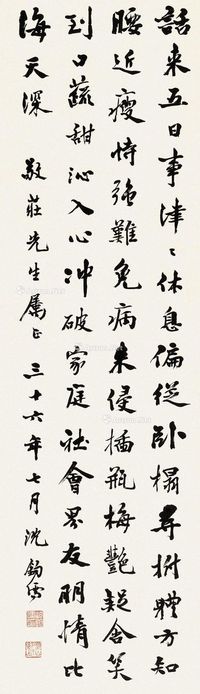 話來五日事津〻休息偏從臥榻尋拊體方知
腰近瘦恃強難免病來侵插瓶梅艷疑含笑
到口蔬甜沁入心沖破家庭社會界友朋情比
海天深 敬莊先生屬正 三十六年七月沈鈞儒